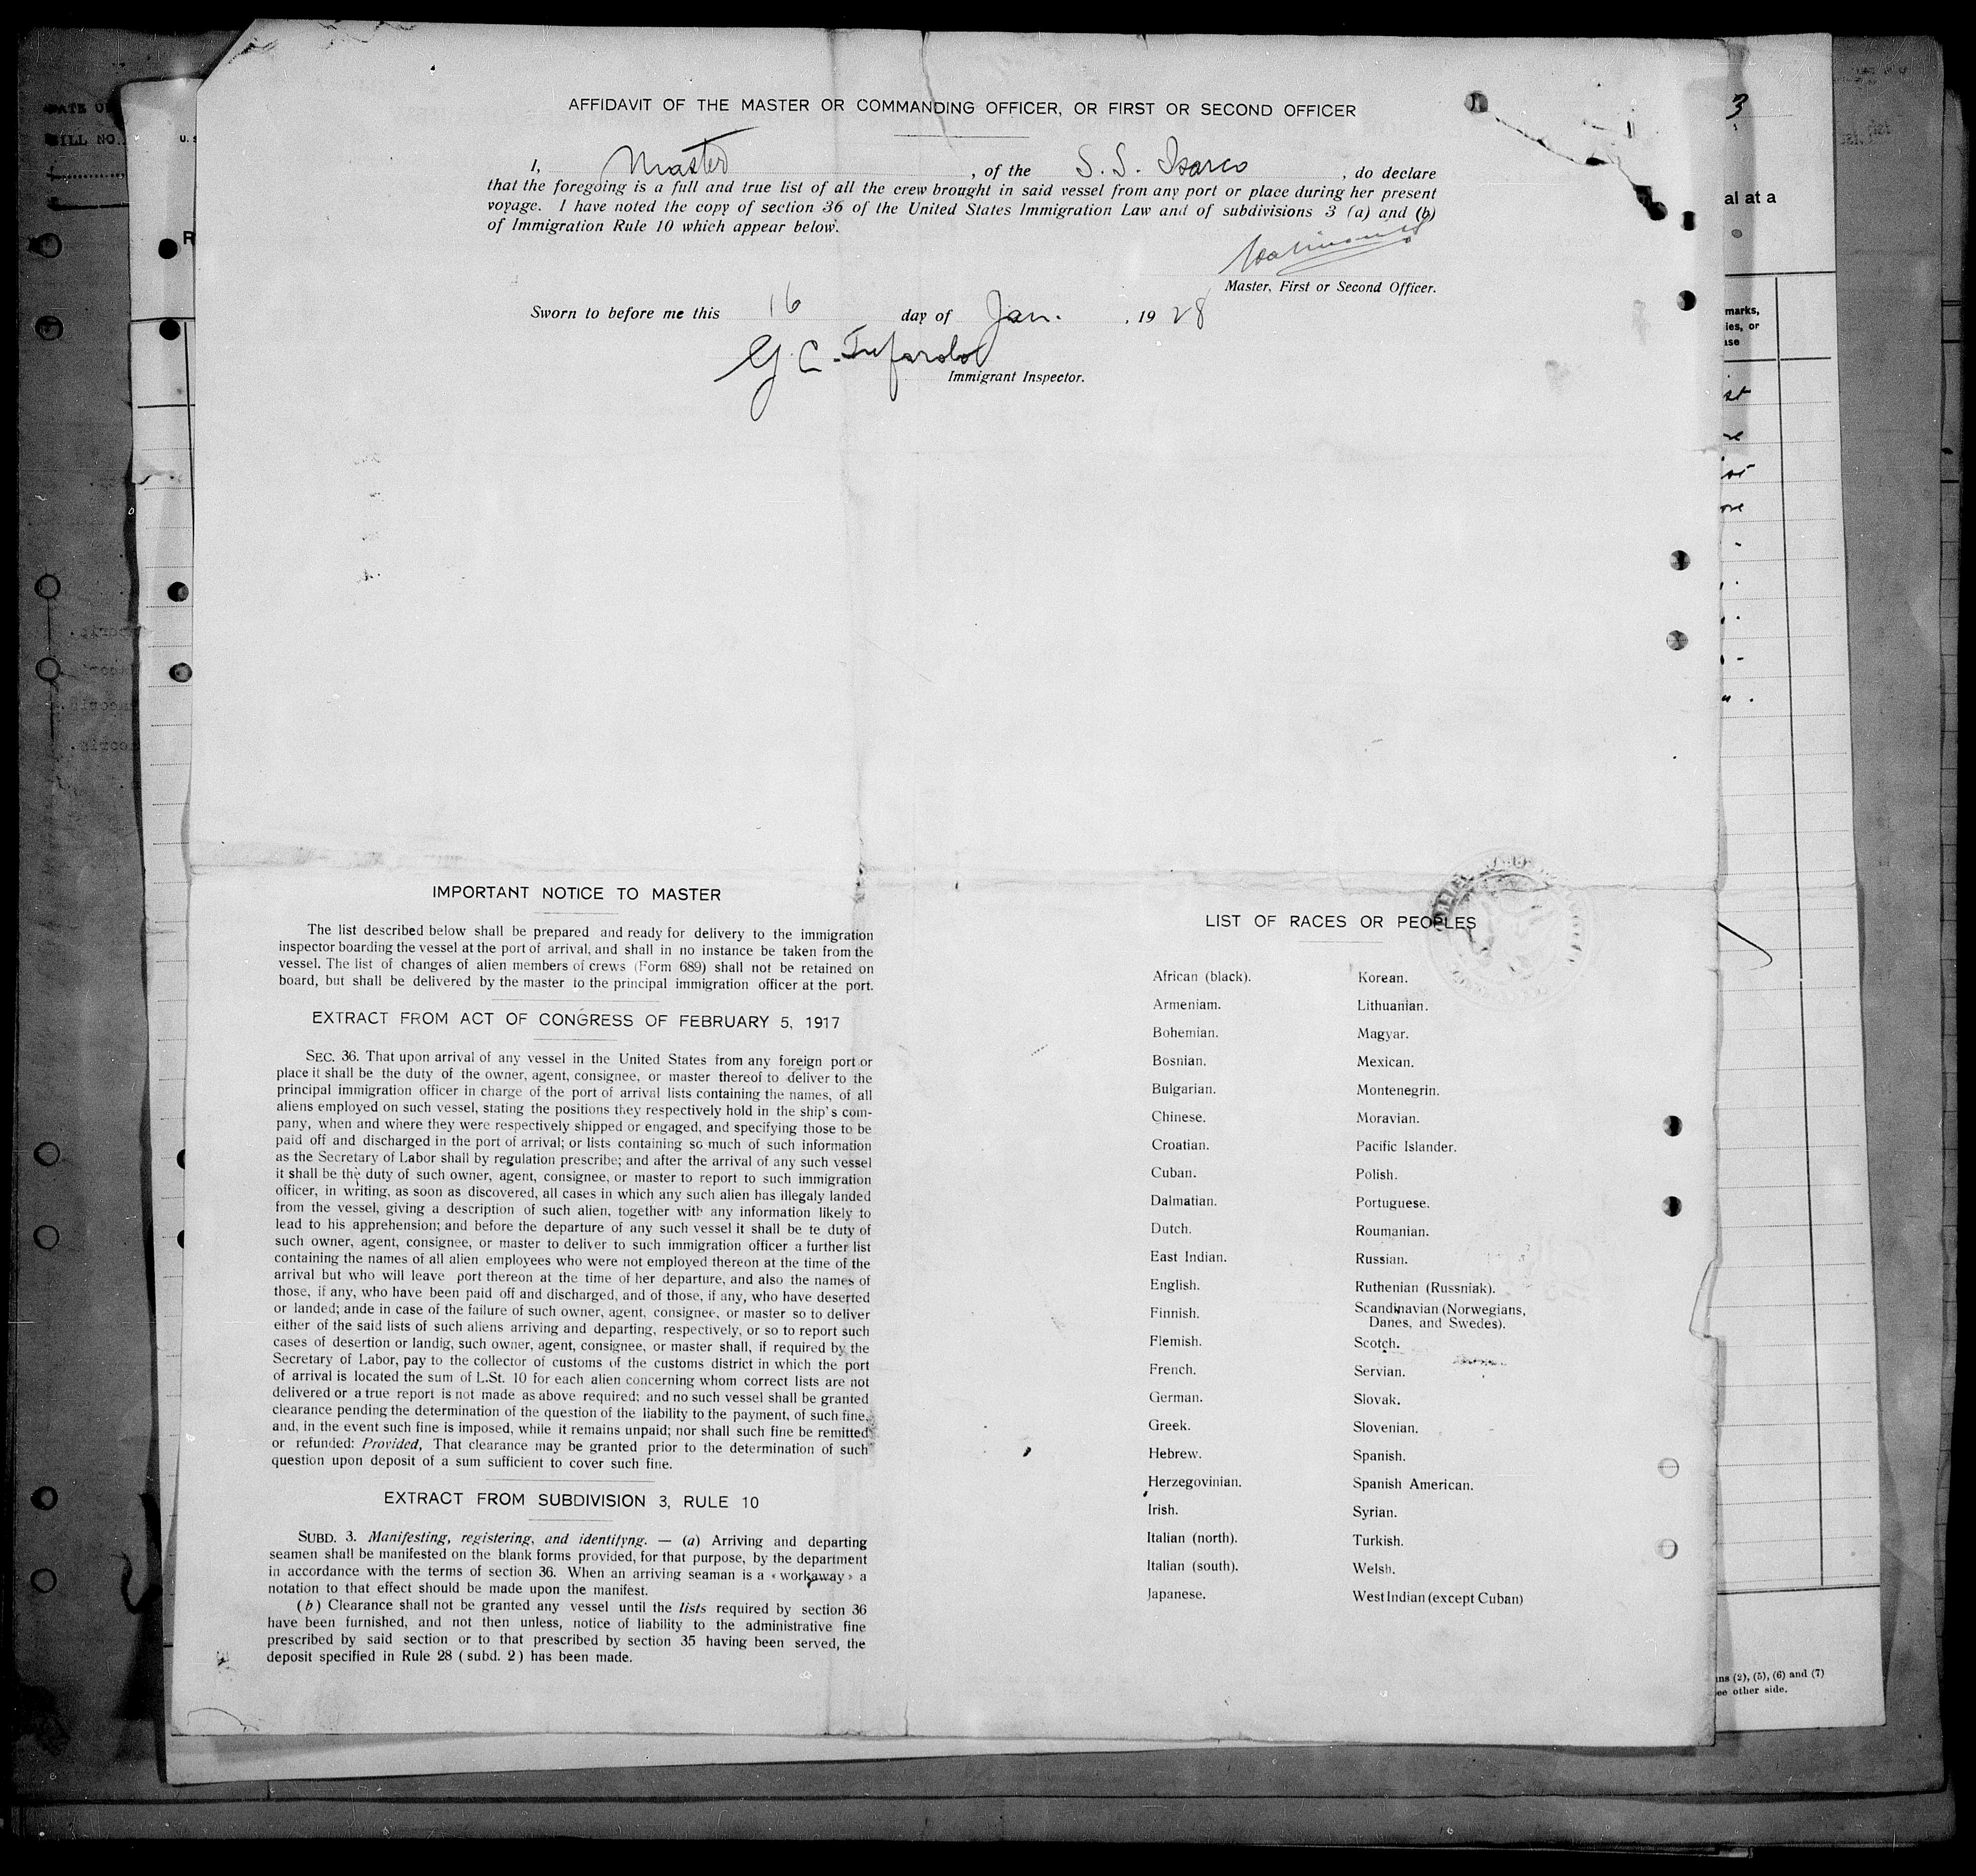 AFFIDAVIT OF THE MASTER OR COMMANDING OFFICER, OR FIRST OR SECOND OFFICER
I, Master, of the S.S. Isarco, do declare
that the foregoing is a full and true list of all the crew brought in said vessel from any port or place during her present
voyage. I have noted the copy of section 36 of the United States Immigration Law and of subdivisions 3 (a) and (b)
of Immigration Rule 10 which appear below.
Master, First or Second Officer.
Sworn to before me this 16 day of Jan. , 19 28
G. C.
Immigrant Inspector.
IMPORTANT NOTICE TO MASTER
The list described below shall be prepared and ready for delivery to the immigration
inspector boarding the vessel at the port of arrival, and shall in no instance be taken from the
vessel. The list of changes of alien members of crews (Form 689) shall not be retained on
board, but shall be delivered by the master to the principal immigration officer at the port.
EXTRACT FROM ACT OF CONGRESS OF FEBRUARY 5, 1917
SEC. 36. That upon arrival of any vessel in the United States from any foreign port or
place it shall be the duty of the owner, agent, consignee, or master thereof to deliver to the
principal immigration officer in charge of the port of arrival lists containing the names, of all
aliens employed on such vessel, stating the positions they respectively hold in the ship's com-
pany, when and where they were respectively shipped or engaged, and specifying those to be
paid off and discharged in the port of arrival; or lists containing so much of such information
as the Secretary of Labor shall by regulation prescribe; and after the arrival of any such vessel
it shall be the duty of such owner, agent, consignee, or master to report to such immigration
officer, in writing, as soon as discovered, all cases in which any such alien has illegaly landed
from the vessel, giving a description of such alien, together with any information likely to
lead to his apprehension; and before the departure of any such vessel it shall be te duty of
such owner, agent, consignee, or master to deliver to such immigration officer a further list
containing the names of all alien employees who were not employed thereon at the time of the
arrival but who will leave port thereon at the time of her departure, and also the names of
those, if any, who have been paid off and discharged, and of those, if any, who have deserted
or landed; ande in case of the failure of such owner, agent, consignee, or master so to deliver
either of the said lists of such aliens arriving and departing, respectively, or so to report such
cases of desertion or landig, such owner, agent, consignee, or master shall, if required by the
Secretary of Labor, pay to the collector of customs of the customs district in which the port
of arrival is located the sum of L.St. 10 for each alien concerning whom correct lists are not
delivered or a true report is not made as above required; and no such vessel shall be granted
clearance pending the determination of the question of the liability to the payment, of such fine,
and, in the event such fine is imposed, while it remains unpaid; nor shall such fine be remitted
or refunded: Provided, That clearance may be granted prior to the determination of such
question upon deposit of a sum sufficient to cover such fine.
EXTRACT FROM SUBDIVISION 3, RULE 10
SUBD. 3. Manifesting, registering, and identifyng. — (a) Arriving and departing
seamen shall be manifested on the blank forms provided, for that purpose, by the department
in accordance with the terms of section 36. When an arriving seaman is a « workaway » a
notation to that effect should be made upon the manifest.
(b) Clearance shall not be granted any vessel until the lists required by section 36
have been furnished, and not then unless, notice of liability to the administrative fine
prescribed by said section or to that prescribed by section 35 having been served, the
deposit specified in Rule 28 (subd. 2) has been made.
LIST OF RACES OR PEOPLES
African (black).
Armeniam.
Bohemian.
Bosnian.
Bulgarian.
Chinese.
Croatian.
Cuban.
Dalmatian.
Dutch.
East Indian.
English.
Finnish.
Flemish.
French.
German.
Greek.
Hebrew.
Herzegovinian.
Irish.
Italian (north).
Italian (south).
Japanese.
Korean.
Lithuanian.
Magyar.
Mexican.
Montenegrin.
Moravian.
Pacific Islander.
Polish.
Portuguese.
Roumanian.
Russian.
Ruthenian (Russniak).
Scandinavian (Norwegians,
Danes, and Swedes).
Scotch.
Servian.
Slovak.
Slovenian.
Spanish.
Spanish American.
Syrian.
Turkish.
Welsh.
West Indian (except Cuban)
3
al at a
marks,
ies, or
ase
ns (2), (5), (6) and (7)
ee other side.
BILL NO.